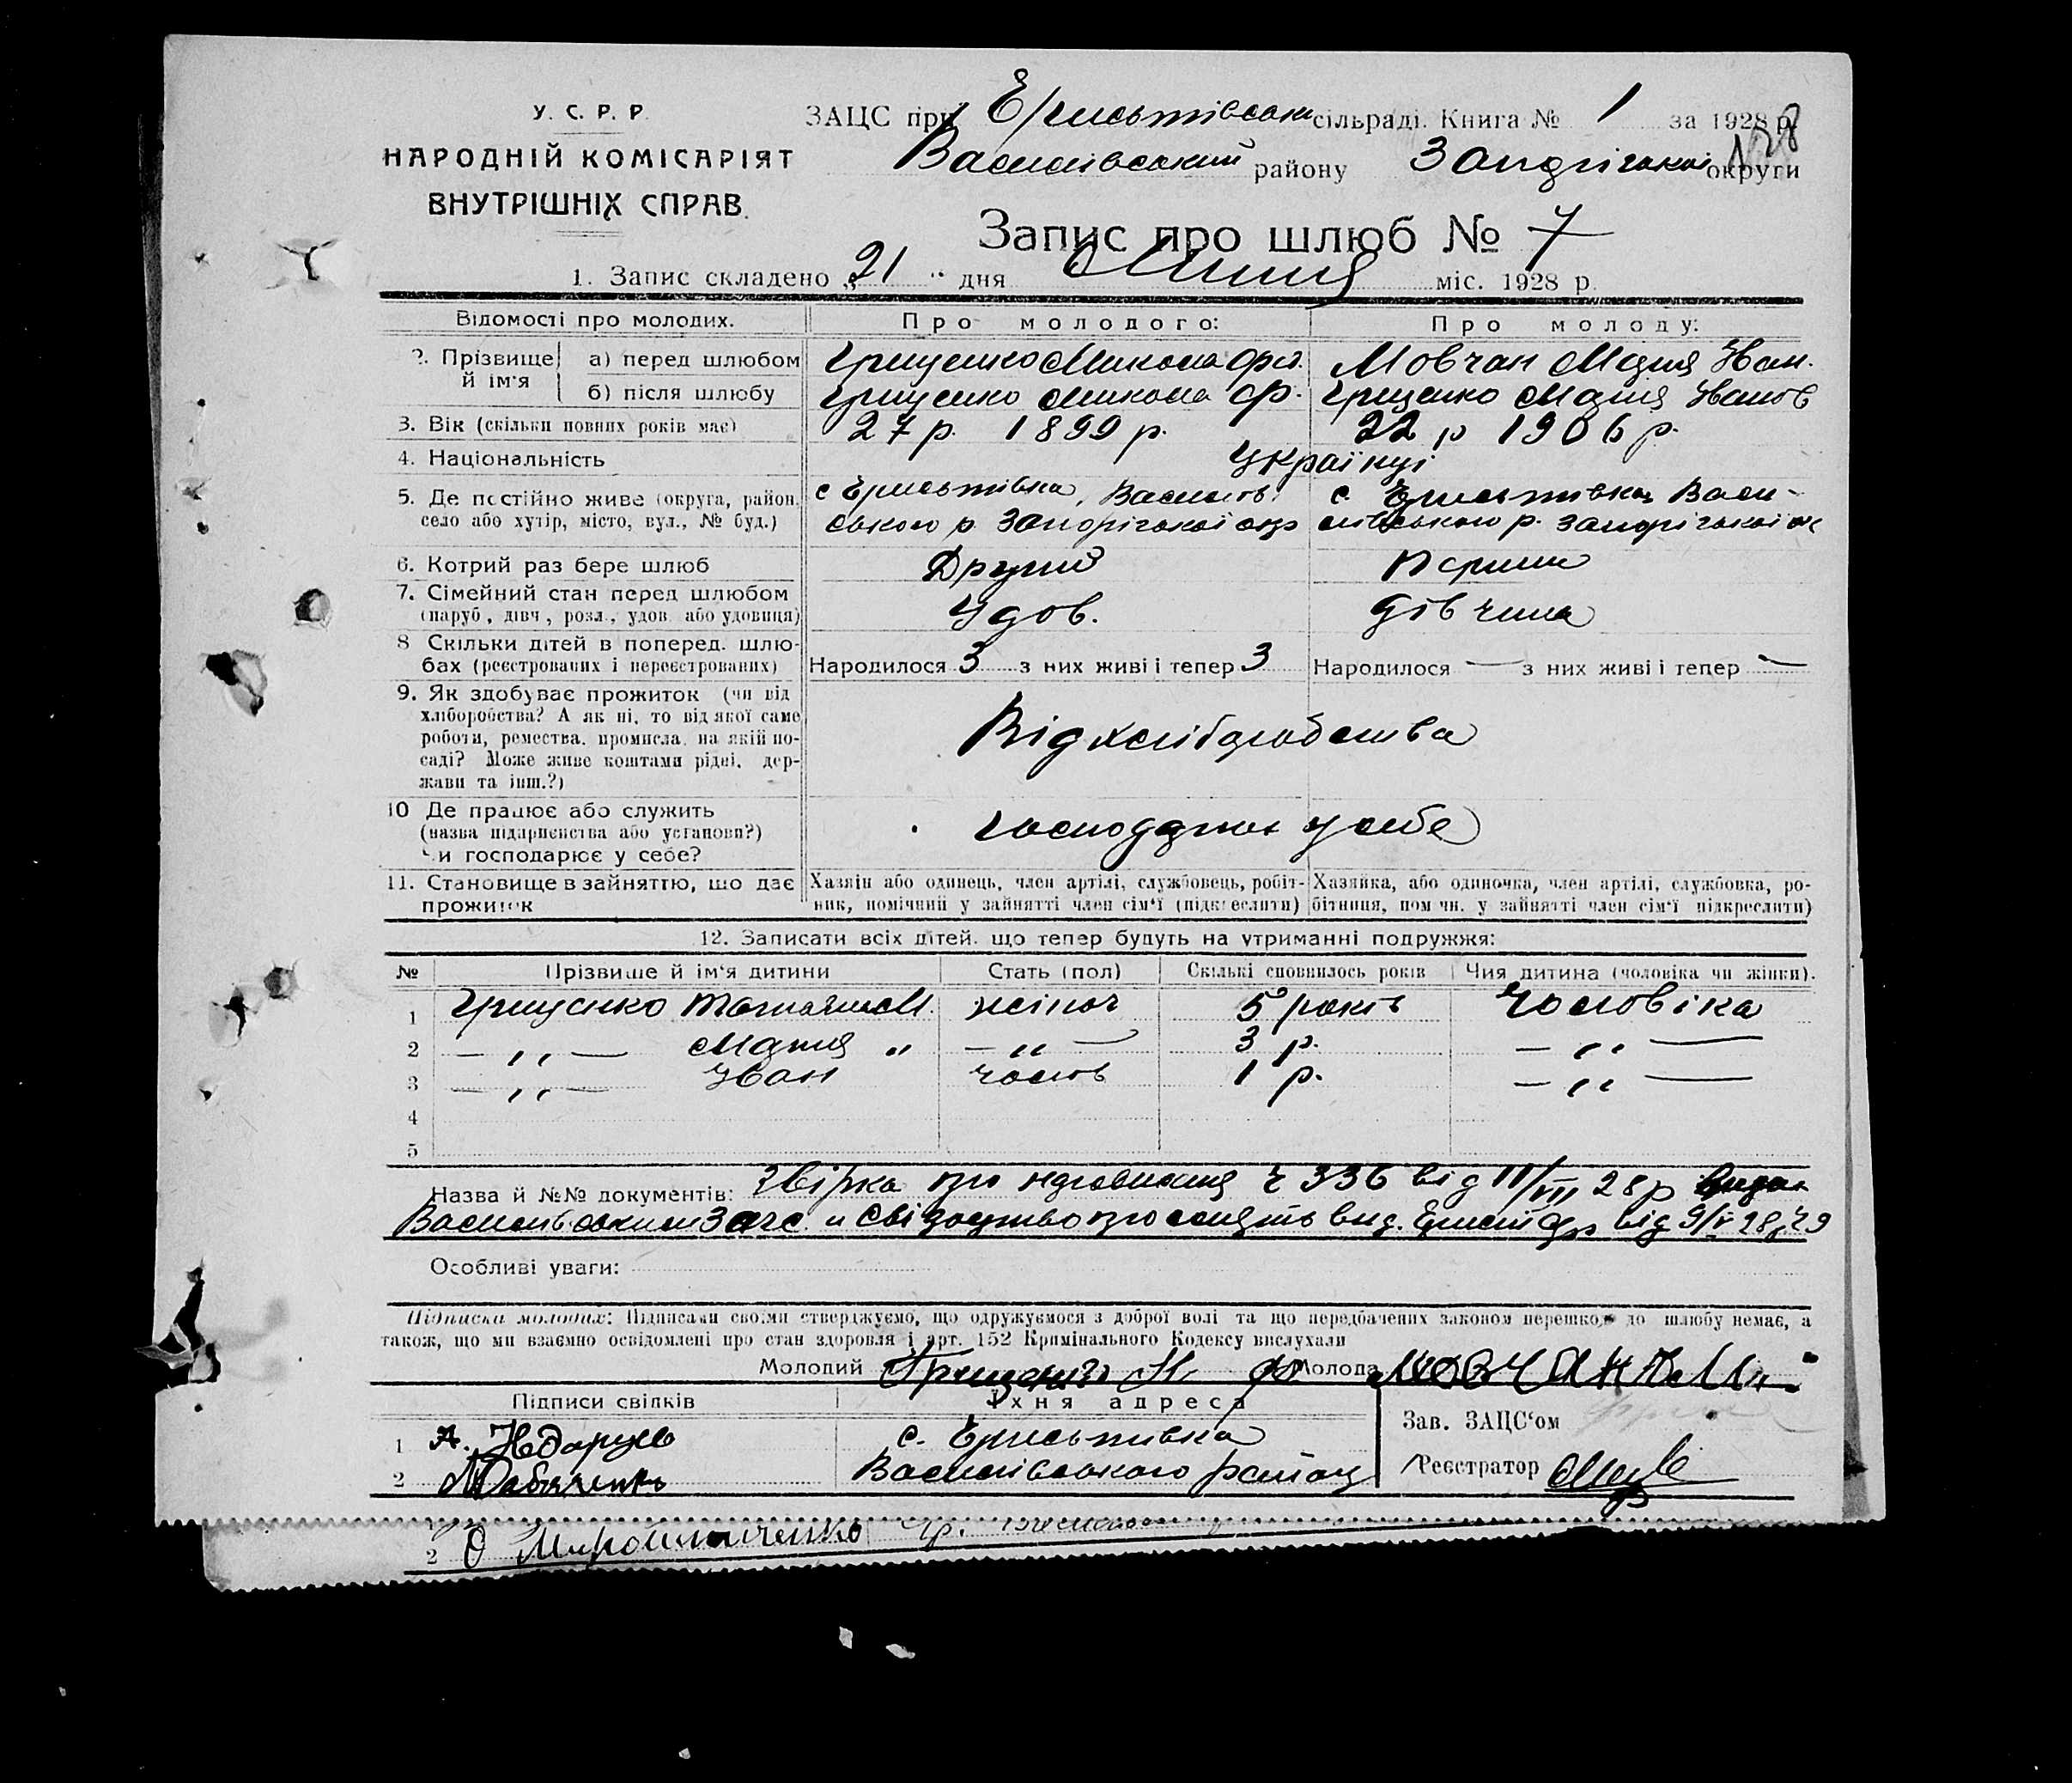 У. С. Р. Р.
НАРОДНІЙ КОМІСАРІЯТ
ВНУТРІШНІХ СПРАВ.
ЗАЦС при Ериствівськ сільраді. Книга № 1 за 1928 р.
Василівський району Запорізької округи
Запис про шлюб № 7
1. Запис складено „21" дня Липня міс. 1928 р.
Відомості про молодих.
Про молодого:
Про молоду:
2. Прізвище й ім'я
а) перед шлюбом
Грищенко Микола
Мовчан Марія Іван.
б) після шлюбу
Грищенко Микола Ф.
Грищенко Марія Іванов
3. Вік (скільки повних років має)
27 р. 1899 р.
22 р 1906 р.
4. Національність
Українці
5. Де постійно живе (округа, район, село або хутір, місто, вул., № буд.)
с Ериствівка, Василів.
ського р. Запорізької окр
с. Ериствівка Васи-
лівського р. Запорізької ок
6. Котрий раз бере шлюб
Другий
Перший
7. Сімейний стан перед шлюбом
(паруб., дівч., розл., удов. або удовиця)
Удов.
дівчина
8 Скільки дітей в поперед. шлю-
бах (реєстрованих і нереєстрованих)
Народилося 3 з них живі і тепер 3
Народилося — з них живі і тепер —
9. Як здобуває прожиток (чи від
хліборобства? А як ні, то від якої саме
роботи, ремества, промисла, на якій по-
саді? Може живе коштами рідні, дер-
жави та інш.?)
Від хліборобства
10 Де працює або служить
(назва підприємства або установи?)
Чи господарює у себе?
господарює у себе
11. Становище в зайняттю, що дає
прожиток
Хазяїн або одинець, член артілі, службовець, робіт-
ник, помічний у зайнятті член сім'ї (підкреслити)
Хазяйка, або одиночка, член артілі, службовка, ро-
бітниця, помічн. у зайнятті член сім'ї підкреслити)
12. Записати всіх дітей, що тепер будуть на утриманні подружжя:
№ Прізвище й ім'я дитини Стать (пол) Скількі сповнилось років Чия дитина (чоловіка чи жінки).
1 Грищенко М. жіноч 5 років Чоловіка
2 — „ — Марія „ — „ — 3 р. — „ —
3 — „ — Іван чолов 1 р. — „ —
4
5
Назва й №№ документів: про ч 336 від 11/VII 28 р
Василівським Загс. и про вид. від 9/V 28 р. 29
Особливі уваги:
Підписка молодих: Підписами своїми стверджуємо, що одружуємося з доброї волі та що передбачених законом перешкод до шлюбу немає, а
також, що ми взаємно освідомлені про стан здоровля і арт. 152 Кримінального Кодексу вислухали
Молодий Грищенко М. Ф. Молода МОВЧАН
Підписи свілків
Їхня адреса
Зав. ЗАЦС'ом
1 А.
с. Ериствівка
2
Василівського району
Реєстратор
2 О Мирошниченко